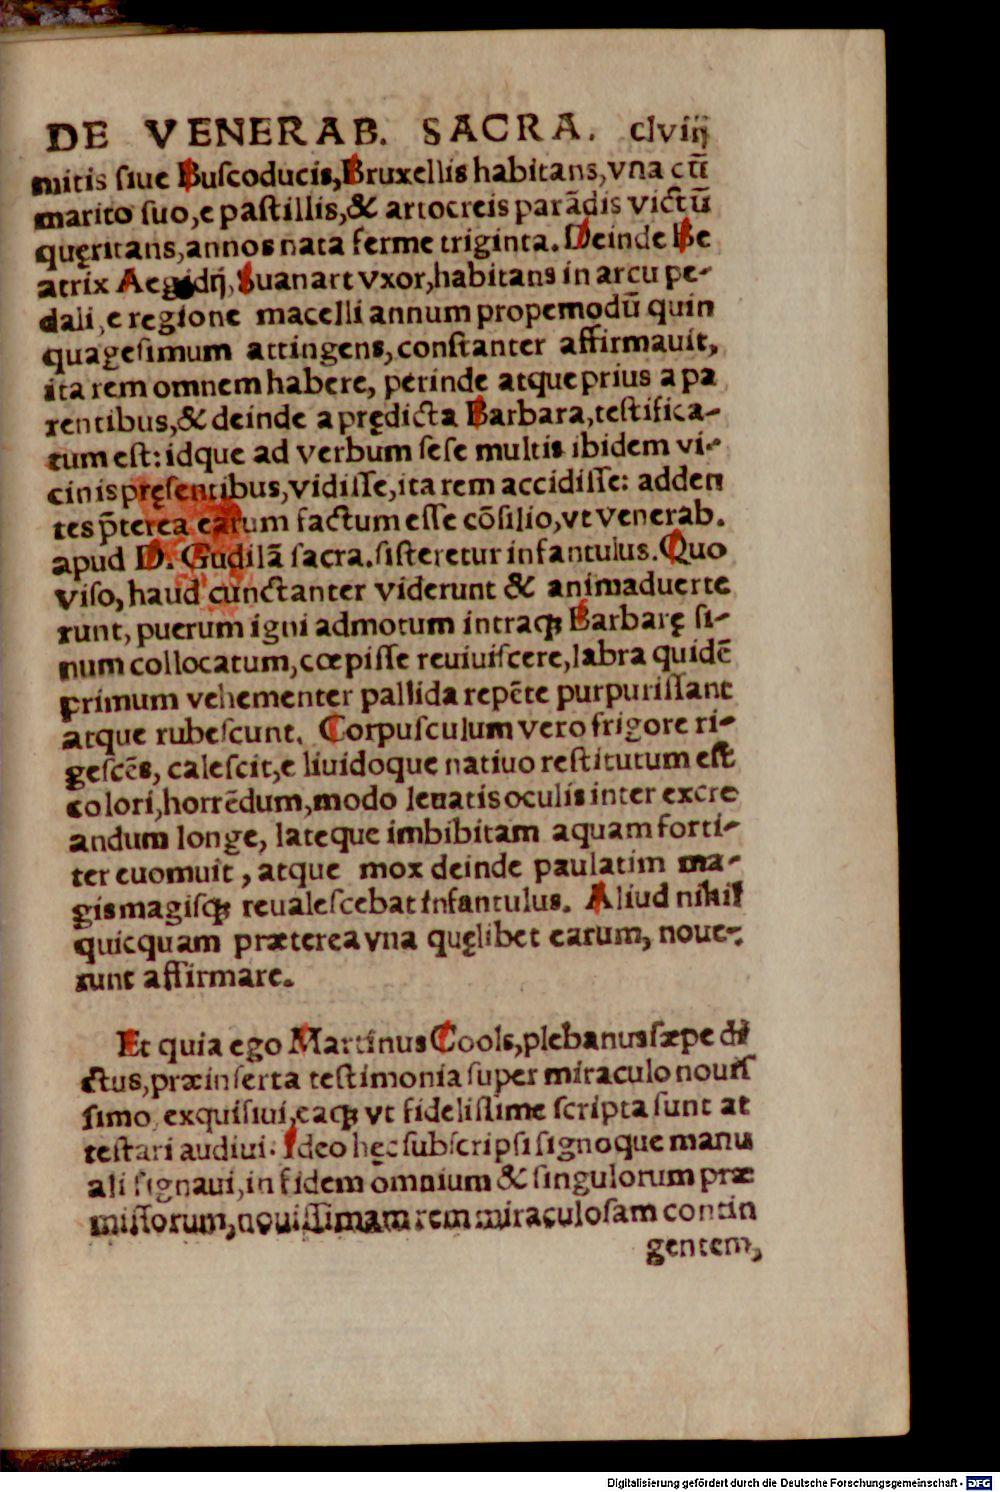 DE VENERAB. SACRA. clviij
mitis ſiue Buſcoducis,Bruxellis habitans,vna cū
marito ſuo,e paſtillis,& artocreis parādis victū
quęritans,annos nata ferme triginta. Deinde Be
atrix Aegidij, Suanart vxor,habitans in arcu pe-
dali,e regione macelli annum propemodū quin
quageſimum attingens,conſtanter affirmauit,
ita rem omnem habere, perinde atque prius a pa
rentibus,& deinde a prędicta Barbara,teſtifica-
tum eſt: idque ad verbum ſeſe multis ibidem vi-
cinis pręſentibus,vidiſſe,ita rem accidiſſe: adden
tes p̄terea earum factum eſſe cōſilio,vt venerab.
apud D. Gudilā ſacra.ſiſteretur infantulus. Quo
viſo, haud cunctanter viderunt & animaduerte
runt, puerum igni admotum intraqꝫ Barbarę ſi-
num collocatum,cœpiſſe reuiuiſcere,labra quidē
primum vehementer pallida repēte purpuriſſant
atque rubeſcunt. Corpuſculum vero frigore ri-
geſcēs, caleſcit,e liuidoque natiuo reſtitutum eſt
colori,horrēdum,modo leuatis oculis inter excre
andum longe, lateque imbibitam aquam forti-
ter euomuit, atque mox deinde paulatim ma-
gis magiſqꝫ reualeſcebat infantulus. Aliud nihil
quicquam præterea vna quęlibet earum, noue-
runt affirmare.
Et quia ego Martinus Cools,plebanus ſæpe di
ctus,præinſerta teſtimonia ſuper miraculo nouiſ
ſimo exquiſiui,eaqꝫ vt fideliſſime ſcripta ſunt at
teſtari audiui. Ideo hęc ſubſcripſi ſignoque manu
ali ſignaui,in fidem omnium & ſingulorum præ
miſſorum,nouiſſimam rem miraculoſam contin
gentem,
Digitalisierung gefördert durch die Deutsche Forschungsgemeinschaft - DFG